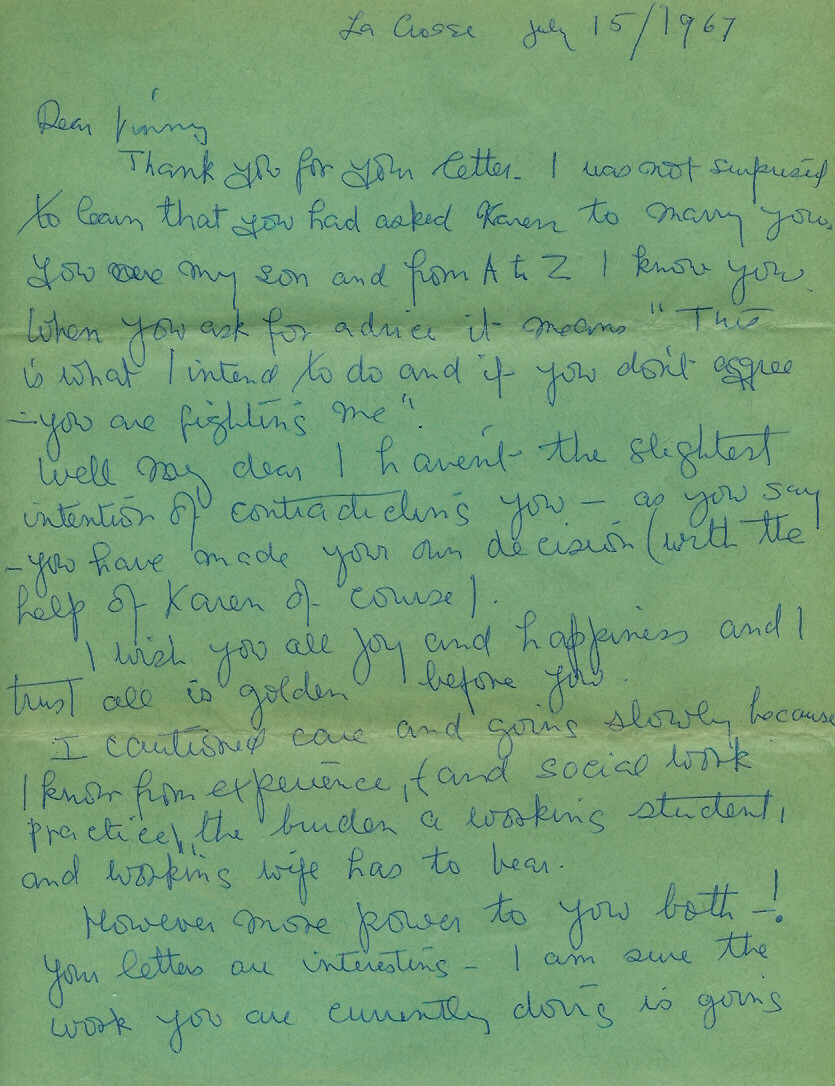 La Crosse July 15/1967
Dear Jimmy
Thank you for your letter. I was not surprised
to learn that you had asked Karen to marry you.
You are my son and from A to Z I know you.
When you ask for advice it means "This
is what I intend to do and if you don't aggree
- you are fighting me".
Well my dear I haven't the slightest
intention of contradicting you - as you say
- you have made your own decision (with the
help of Karen of course).
I wish you all joy and happiness and I
trust all is golden before you.
I cautioned care and going slowly because
I know from experience, (and social work
practice), the burden a working student,
and working wife has to bear.
However more power to you both -!
Your letters are interesting - I am sure the
work you are currently doing is going